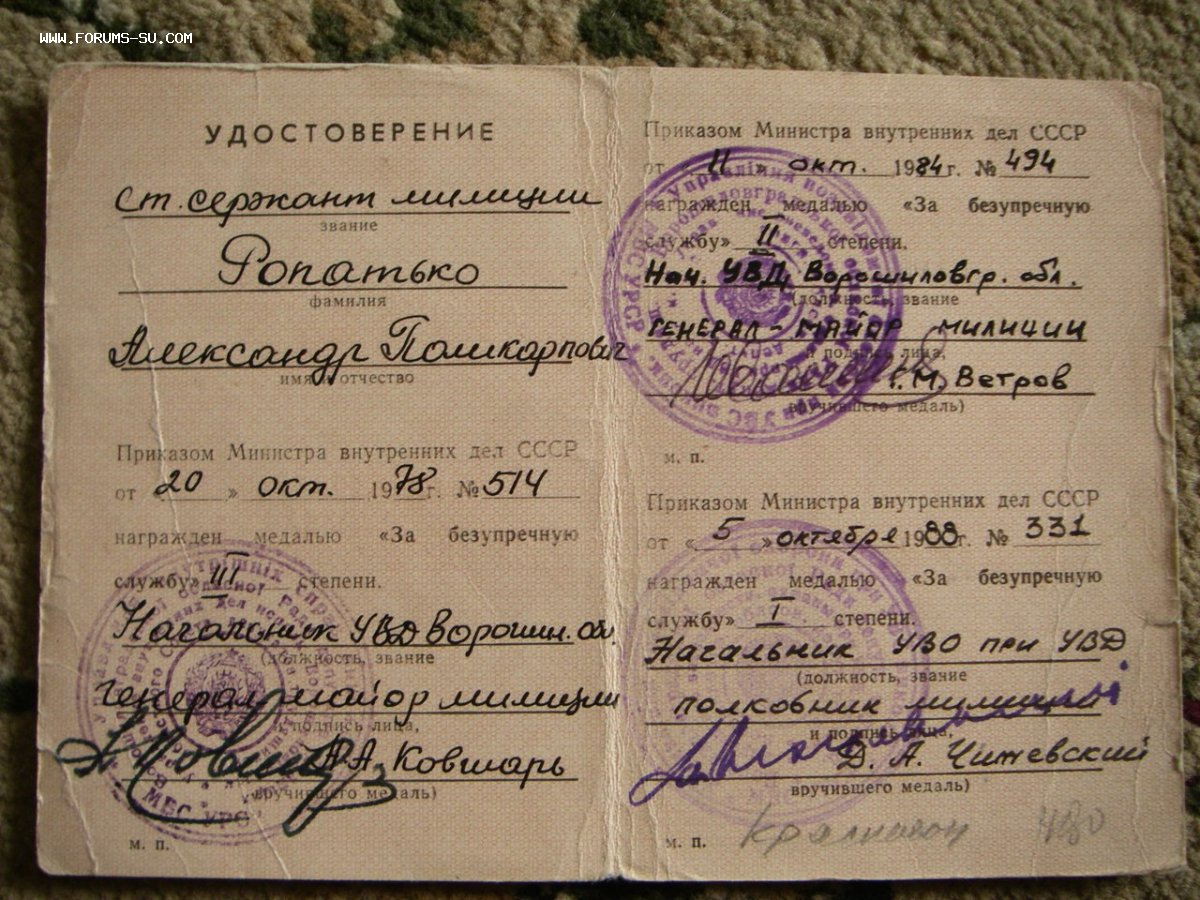 www.forums-su.com
УДОСТОВЕРЕНИЕ
ст. сержант милиции
звание
Ропатько
фамилия
Александр Поликарпович
имя и отчество
Приказом Министра внутренних дел СССР
от «20» окт. 1978 г. № 514
награжден медалью «За безупречную
службу» III степени.
Начальник УВД Ворошил. обл.
(должность, звание
генерал майор милиции
и подпись лица,
А. Ковшарь
вручившего медаль)
м. п.
Приказом Министра внутренних дел СССР
от «11» окт. 1984 г. № 494
награжден медалью «За безупречную
службу» II степени.
Нач. УВД Ворошиловгр. обл.
(должность, звание
генерал-майор милиции
и подпись лица,
Г. М. Ветров
вручившего медаль)
м. п.
Приказом Министра внутренних дел СССР
от «5» октября 1988 г. № 331
награжден медалью «За безупречную
службу» I степени.
Начальник УВО при УВД
(должность, звание
полковник милиции
и подпись лица,
Д. А. Чижевский
вручившего медаль)
м. п.